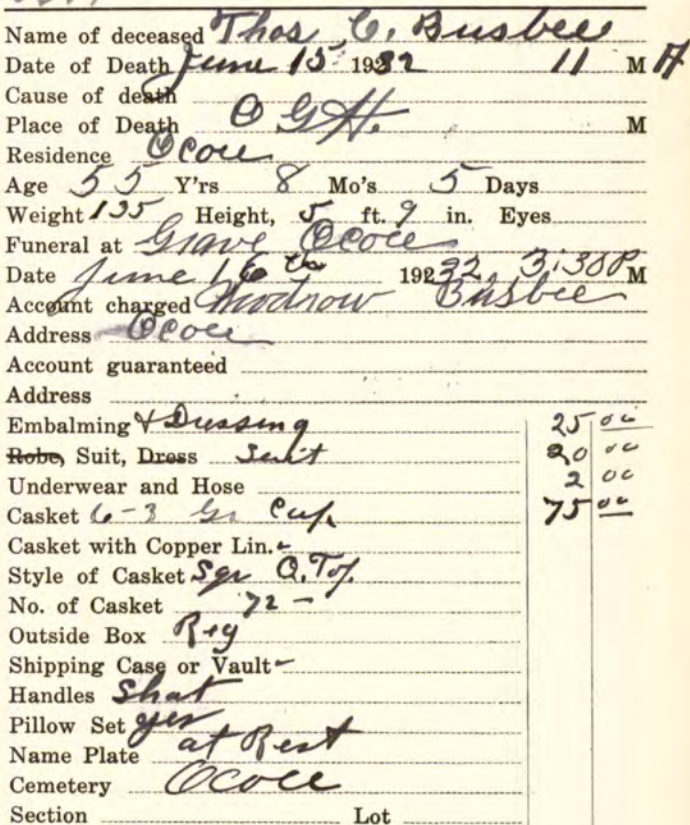 Name of deceased Thos C. Busbee
Date of Death June 15 1932 11 M A
Cause of death
Place of Death O G H. M
Residence Ocoee
Age 55 Y'rs 8 Mo's 5 Days
Weight 135 Height, 5 ft. 9 in. Eyes
Funeral at Grave Ocoee
Date June 16th 19232. 3:30P M
Account charged Woodrow Busbee
Address Ocoee
Account guaranteed
Address
Embalming & Dressing 25 00
Robe, Suit, Dress Suit 20 00
Underwear and Hose 2 00
Casket 6-3 Gr 75 00
Casket with Copper Lin. -
Style of Casket Sqr O. Top
No. of Casket 72 -
Outside Box Reg
Shipping Case or Vault -
Handles Shat
Pillow Set yes
Name Plate at Rest
Cemetery Ocoee
Section Lot